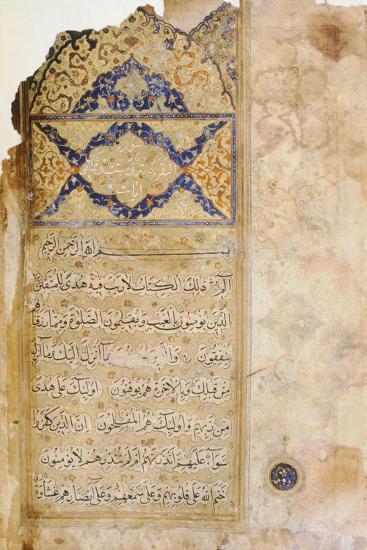 بسم الله الرحمن الرحيم
الم ذلك الكتاب لا ريب فيه هدى للمتقين
الذين يؤمنون بالغيب ويقيمون الصلوة ومما رزقنا
ينفقون والذين بما أنزل إليك وما أنزل
من قبلك وبالآخرة هم يوقنون أوليك على هدى
من ربهم وأوليك هم المفلحون إن الذين كفروا
سواء عليهم ءأنذرتهم أم لم تنذرهم لا يؤمنون
ختم الله على قلوبهم وعلى سمعهم وعلى أبصارهم غشاوة